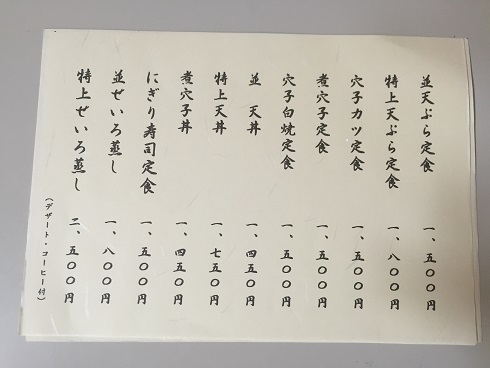 並天ぷら定食 一、五〇〇円
特上天ぷら定食 一、八〇〇円
穴子カツ定食 一、五〇〇円
煮穴子定食 一、五〇〇円
穴子白焼定食 一、五〇〇円
並 天丼 一、四五〇円
特上天丼 一、七五〇円
煮穴子丼 一、四五〇円
にぎり寿司定食 一、五〇〇円
並ぜいろ蒸し 一、八〇〇円
特上ぜいろ蒸し 二、五〇〇円
(デザート・コーヒー付)